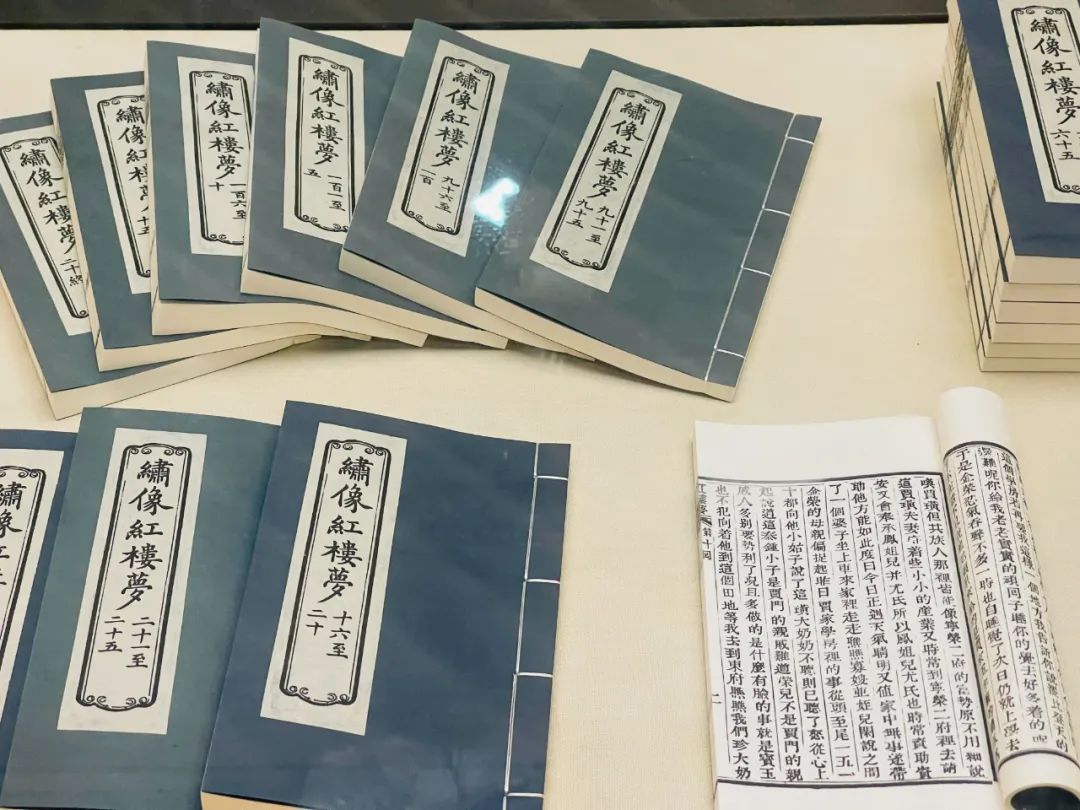 繡像紅樓夢
二十終
繡像紅樓夢
十五
繡像紅樓夢
一百六至
十
繡像紅樓夢
一百一至
五
繡像紅樓夢
九十六至
一百
繡像紅樓夢
九十一至
九十五
繡像紅樓夢
六十五
繡像紅
繡像紅樓夢
二十一至
二十五
繡像紅樓夢
十六至
二十
難呢你給我老老實實的頑囘子睡你的覺去好多着的呢
于是金榮忍氣吞聲不多一時也自睡覺了次日仍就上學去
賈璜但其族人那裡皆能像寧榮二府的富勢原不用細說
這賈璜夫妻守着些小小的產業又時常到寧榮二府裡去請
安又會奉承鳳姐兒并尤氏所以鳳姐兒尤氏也時常資助資
助他方能如此度日今日正遇天氣晴明又值家中無事遂帶
了一個婆子坐上車來家裡走走瞧瞧寡嫂並姪兒閒說之間
金榮的母親偏提起昨日賈家學房裡的事從頭至尾一五一
十都向他小姑子說了這璜大奶奶不聽則已聽了怒從心上
起說道這秦鍾小子是賈門的親戚難道榮兒不是賈門的親
戚人多別要勢利了況且多做的是什麼有臉的事就是寶玉
也不犯向着他到這個田地等我去到東府瞧瞧我們珍大奶
紅樓夢 第十回
二